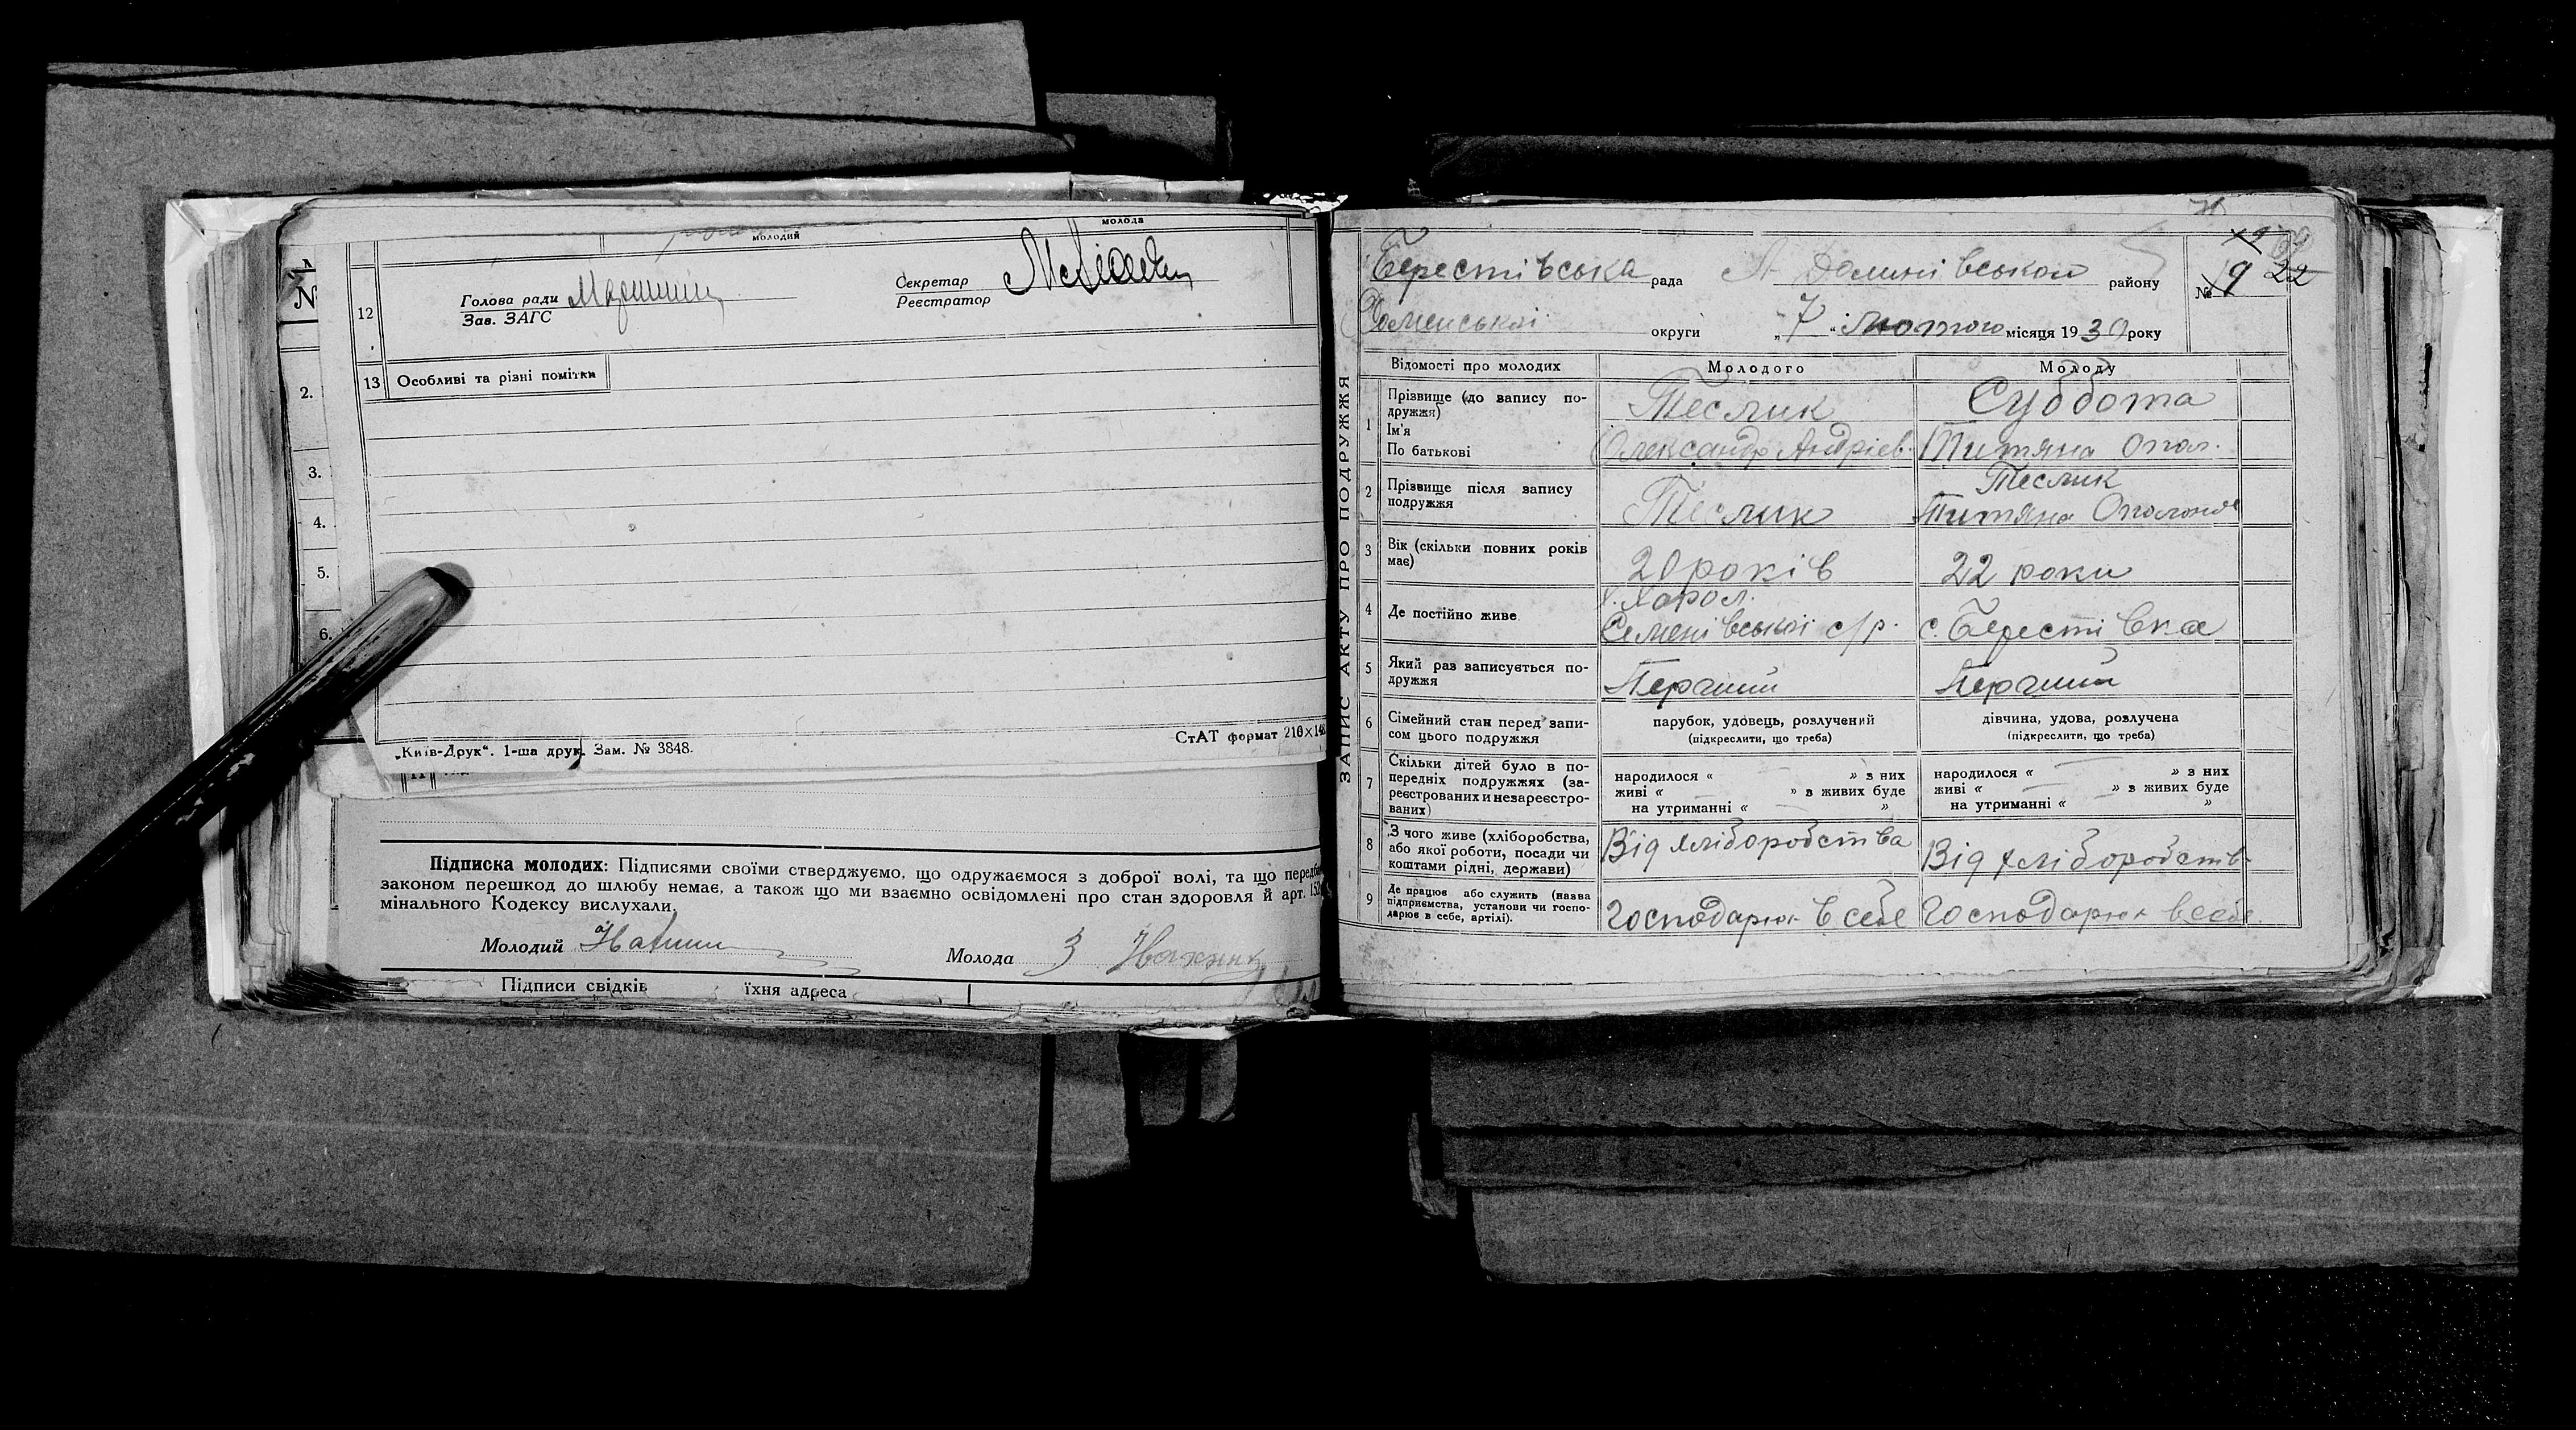 молодий
молода
12
Голова ради
Зав. ЗАГС
Секретар
Реєстратор
13 Особливі та різні помітки
N
2.
3.
4.
5.
6.
„Київ-Друк“. 1-ша друк. Зам. № 3848.
СтАТ формат 210×14
11
Підписка молодих: Підписями своїми стверджуємо, що одружаємося з доброї волі, та що передб
законом перешкод до шлюбу немає, а також що ми взаємно освідомлені про стан здоров'я й арт. 152
мінального Кодексу вислухали.
Молодий
Молода
Підписи свідків їхня адреса
ЗАПИС АКТУ ПРО ПОДРУЖЖЯ
Берестівська рада района
№ 19 22
Роменської округи „7“ лютого місяця 1930 року
Відомості про молодих Молодого Молоду
1 Прізвище (до запису по-
дружжя)
Ім'я
По батькові
Теслик
Олександр Андріев.
Суббота
Титяна Опол.
2 Прізвище після запису
подружжя
Теслик
Теслик
Титяна
3 Вік (скільки повних років
має)
20 років
22 роки
4 Де постійно живе
Семенівської с/р.
с. Берестівка
5 Який раз записується по-
дружжя
Перший
Перший
6 Сімейний стан перед запи-
сом цього подружжя
парубок, удовець, розлучений
(підкреслити, що треба)
дівчина, удова, розлучена
(підкреслити, що треба)
7 Скільки дітей було в по-
передніх подружжях (за-
реєстрованих и незареєстро-
ваних)
народилося « » з них
живі « » з живих буде
на утриманні « »
народилося « » з них
живі « » з живих буде
на утриманні « »
8 З чого живе (хліборобства,
або якої роботи, посади чи
коштами рідні, держави)
Від хліборобства
Від хліборобств.
9 Де працює або служить (назва
підприємства, установи чи госпо-
дарює в себе, артілі).
Господарює в себе
Господарює в себе.